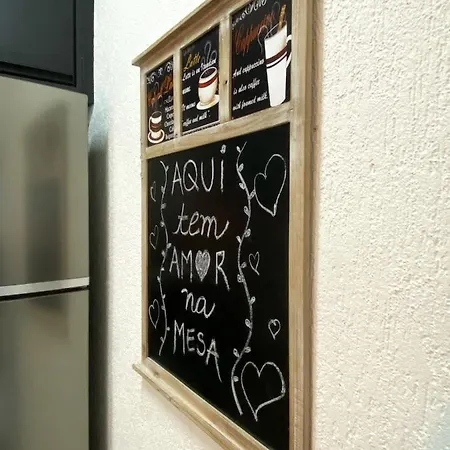 Latte
Latte is an
"coffee and milk"
Cappuccino
And cappuccino
is also coffee
with foamed milk.
AQUI
tem
AMOR
na
MESA